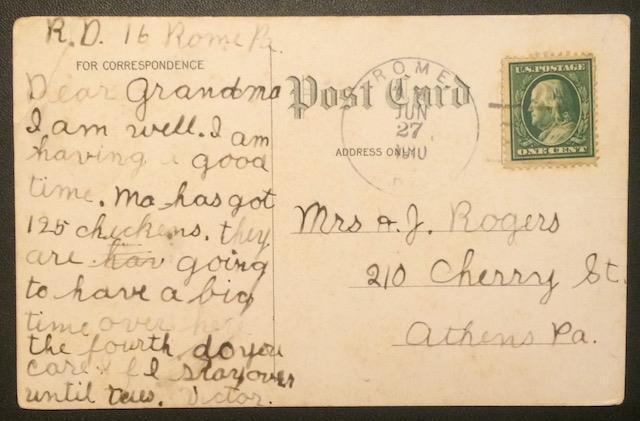 R.D. 16 Rome Pa.
FOR CORRESPONDENCE
Dear Grandma
I am well. I am
having a good
time. Ma has got
125 chickens. they
are hav going
to have a big
time over here
the fourth. do you
care if I stay over
until Tues. Victor.
Post Card
ADDRESS ONLY
ROME
JUN
27
U.S. POSTAGE
ONE CENT
Mrs A. J. Rogers
210 Cherry St.
Athens Pa.